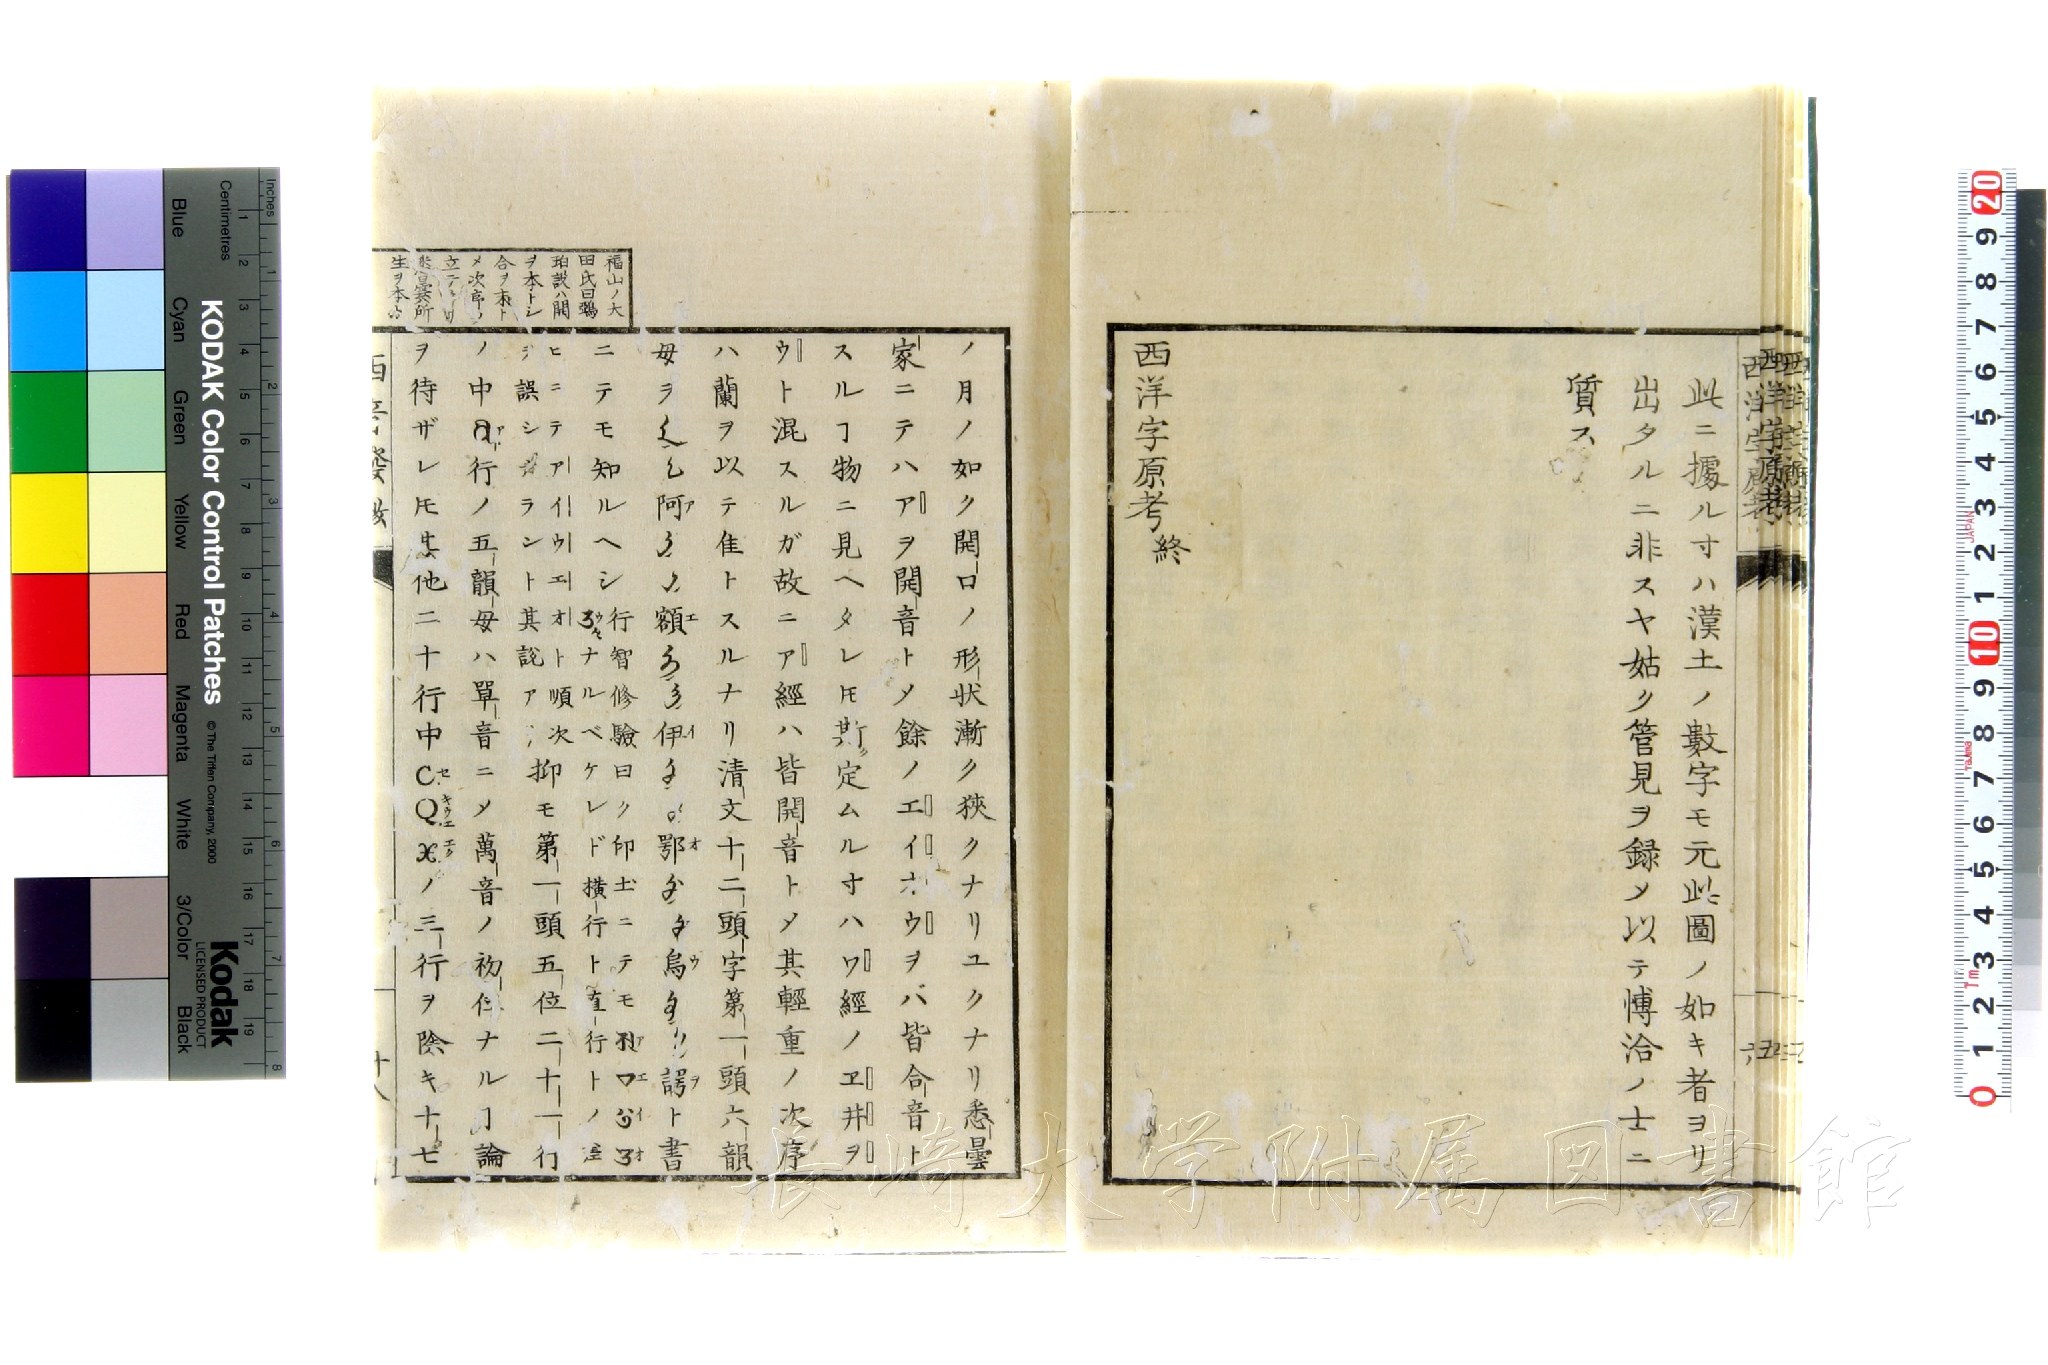 此ニ據ル寸ハ漢土ノ數字モ元此圖ノ如キ者ヨリ
出タルニ非スヤ姑ク管見ヲ録メ以テ博洽ノ士ニ
質ス
西洋字原考終
福山ノ大
田氏曰鵶
珀説ハ開
ヲ本トシ
合ヲ末ト
メ次序ヲ
立テ
生ヲ本
ノ月ノ如ク開口ノ形状漸ク狹クナリユクナリ悉曇
家ニテハアヲ開音トメ餘ノエイオウヲバ皆合音ト
スルヿ物ニ見ヘタレモ斯ク定ムル寸ハワ經ノヱヰヲ
ウト混スルガ故ニア經ハ皆開音トメ其輕重ノ次序
ハ蘭ヲ以テ隹トスルナリ清文十二頭字第一頭六韻
母ヲ 阿ア 額エ 伊イ 鄂オ 烏ウ 諤ヲト書
ニテモ知ルヘシ
行智修驗曰ク印土ニテモ
ナルベケレド横行ト直行トノ
ヒニテアイウエオト順次
誤シ ランント其説ア
抑モ第一頭五位二十一行
ノ中a行ノ五韻母ハ單音ニメ萬音ノ初位ナルヿ論
ヲ待ザレモ其他二十行中CセQキウエXエクノ三行ヲ除キ十七
西音發微
十八
西洋字原考
長崎大学附属図書館
KODAK Color Control Patches
© The Tiffen Company, 2000
Kodak
LICENSED PRODUCT
Inches
Centimetres
Blue
Cyan
Green
Yellow
Red
Magenta
White
3/Color
Black
JAPAN
TAJIMA
1m